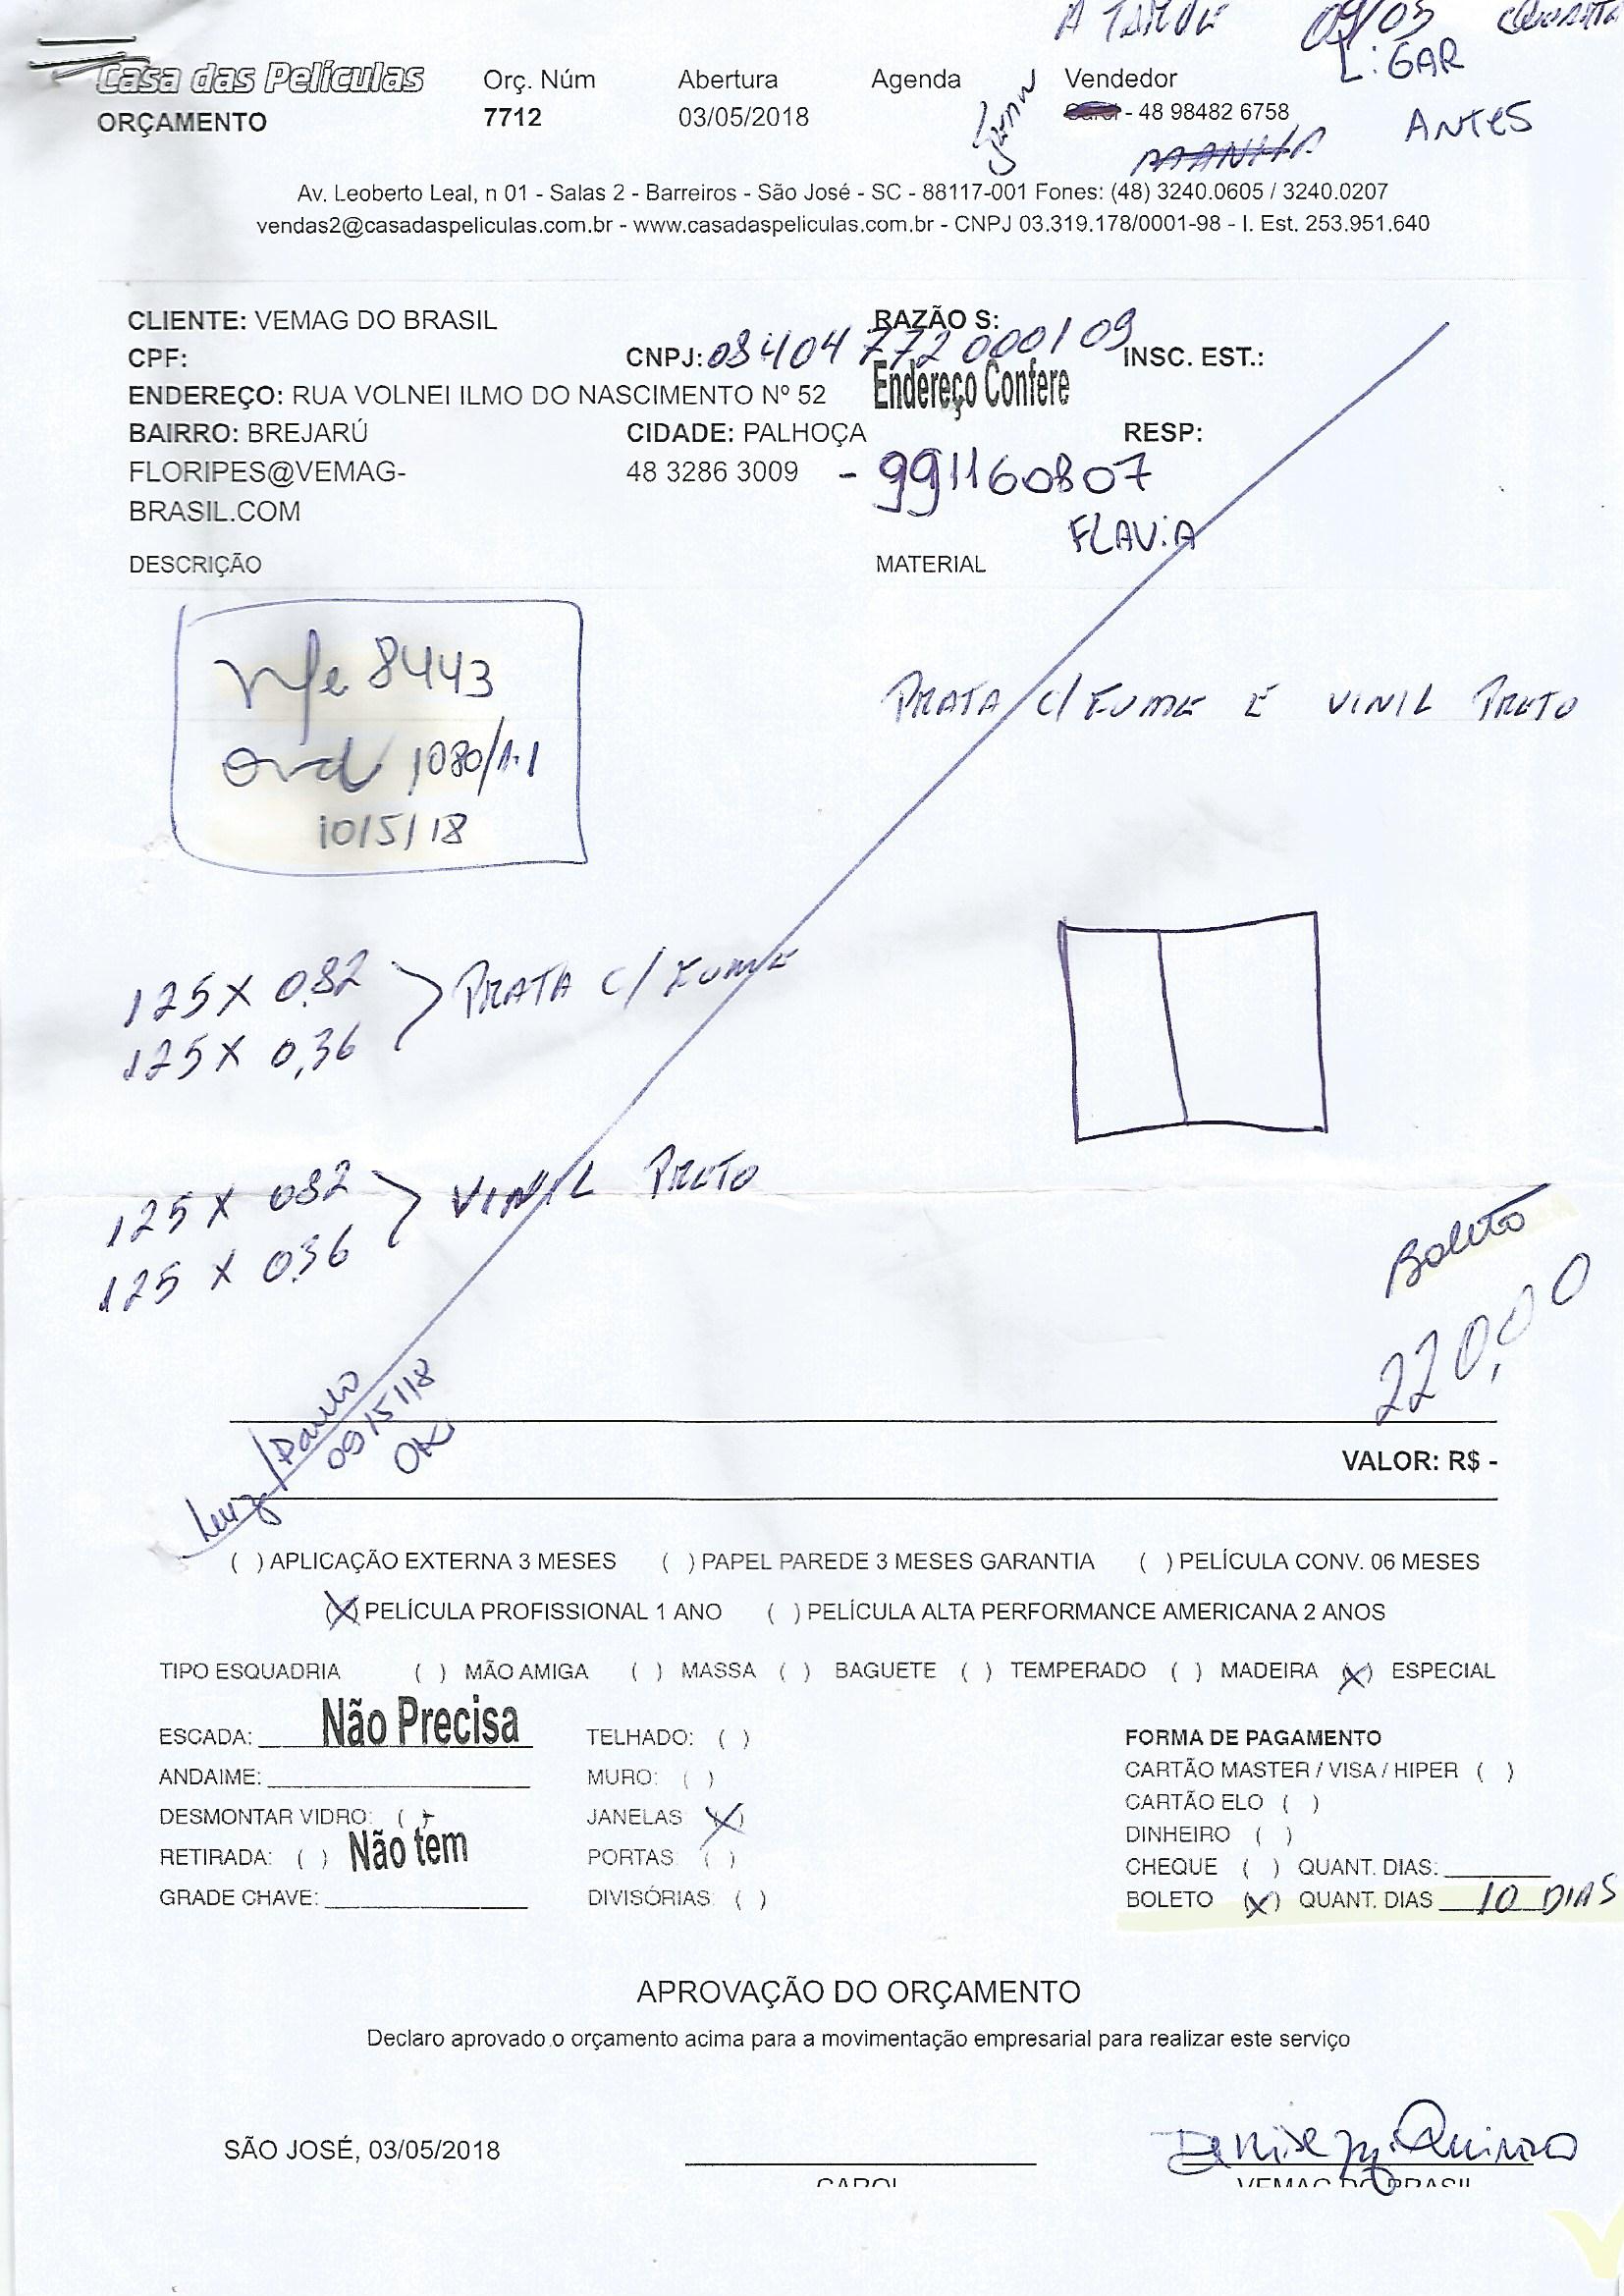 A TARDE 09/05 QUARTA
L:GAR
ANTES
Casa das Películas
ORÇAMENTO
Orç. Núm
7712
Abertura
03/05/2018
Agenda
Vendedor
- 48 98482 6758
MANHA
Av. Leoberto Leal, n 01 - Salas 2 - Barreiros - São José - SC - 88117-001 Fones: (48) 3240.0605 / 3240.0207
vendas2@casadaspeliculas.com.br - www.casadaspeliculas.com.br - CNPJ 03.319.178/0001-98 - I. Est. 253.951.640
CLIENTE: VEMAG DO BRASIL RAZÃO S:
CPF: CNPJ: 08404 772 0001 09 INSC. EST.:
ENDEREÇO: RUA VOLNEI ILMO DO NASCIMENTO Nº 52 Endereço Confere
BAIRRO: BREJARÚ CIDADE: PALHOÇA RESP:
FLORIPES@VEMAG- 48 3286 3009 - 991160807
BRASIL.COM FLAV:A
DESCRIÇÃO MATERIAL
nfe 8443
ord 1080/1.1
10/5/18
PRATA C/ FUME E VINIL PRETO
125 X 0.82 PRATA C/ FUME
125 X 0,36
125 X 082 VINIL PRETO
125 X 036
Boleto
220,00
Luiz/Paulo
09/5/18
OK
VALOR: R$ -
( ) APLICAÇÃO EXTERNA 3 MESES ( ) PAPEL PAREDE 3 MESES GARANTIA ( ) PELÍCULA CONV. 06 MESES
(X) PELÍCULA PROFISSIONAL 1 ANO ( ) PELÍCULA ALTA PERFORMANCE AMERICANA 2 ANOS
TIPO ESQUADRIA ( ) MÃO AMIGA ( ) MASSA ( ) BAGUETE ( ) TEMPERADO ( ) MADEIRA (X) ESPECIAL
ESCADA: Não Precisa TELHADO: ( ) FORMA DE PAGAMENTO
ANDAIME: MURO: ( ) CARTÃO MASTER / VISA / HIPER ( )
DESMONTAR VIDRO: ( ) JANELAS (X) CARTÃO ELO ( )
DINHEIRO ( )
RETIRADA: ( ) Não tem PORTAS ( ) CHEQUE ( ) QUANT. DIAS:
GRADE CHAVE: DIVISÓRIAS: ( ) BOLETO (X) QUANT. DIAS 10 DIAS
APROVAÇÃO DO ORÇAMENTO
Declaro aprovado o orçamento acima para a movimentação empresarial para realizar este serviço
SÃO JOSÉ, 03/05/2018
CAROL VEMAG DO BRASIL